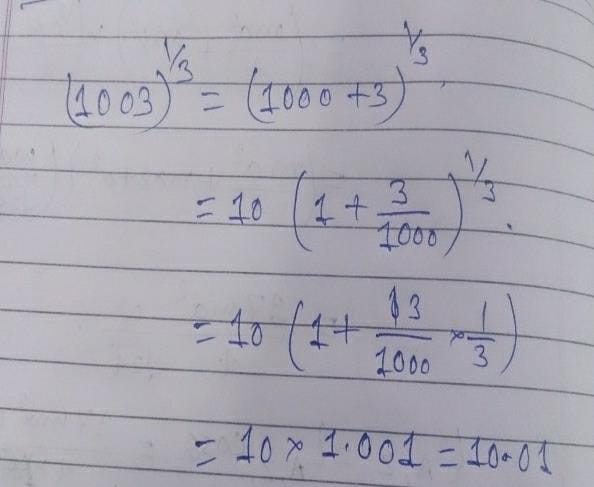 (1003)^1/3 = (1000 + 3)^1/3
= 10 (1 + 3/1000)^1/3.
= 10 (1 + 3/1000 × 1/3)
= 10 × 1.001 = 10.01